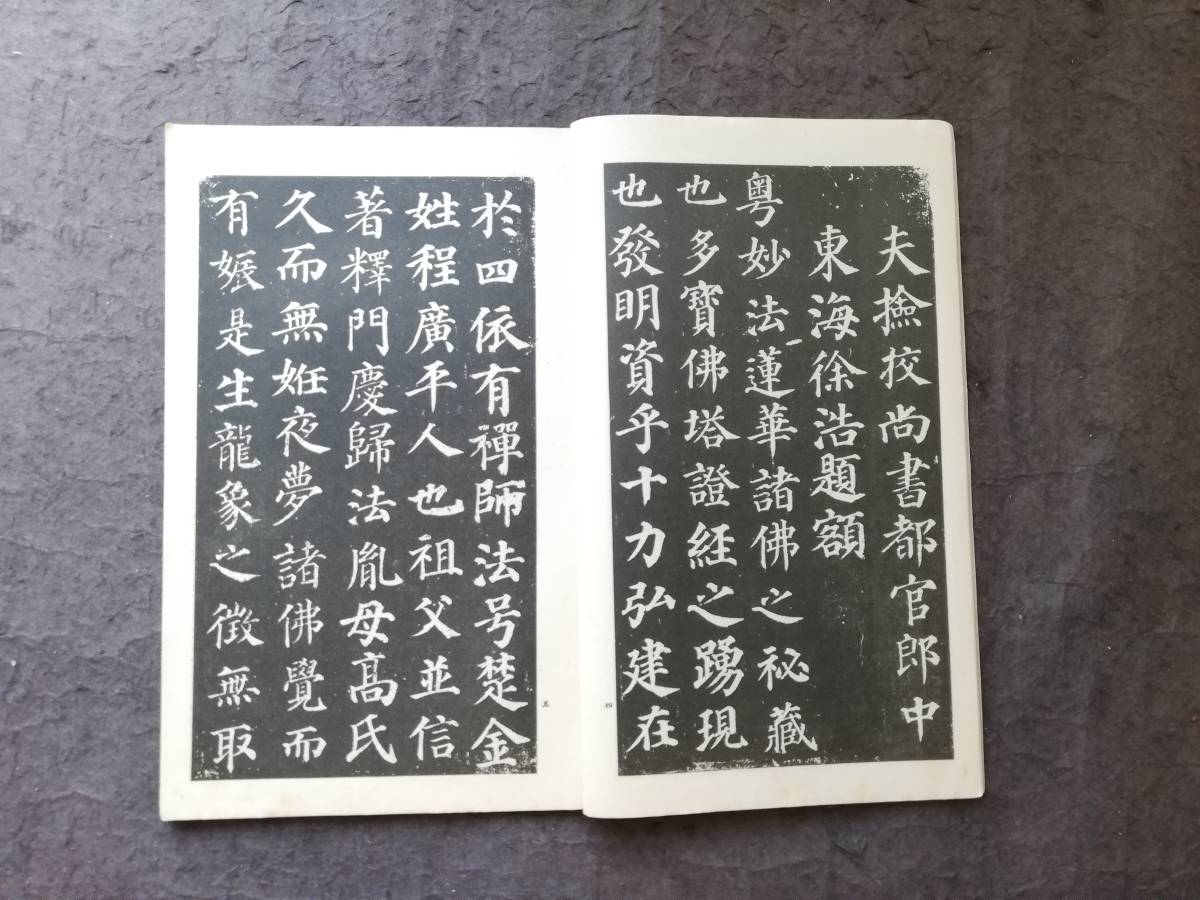 夫撿挍尚書都官郎中
東海徐浩題額
粤妙法蓮華諸佛之祕藏
也多寶佛塔證經之踴現
也發明資乎十力弘建在
四
於四依有禪師法号楚金
姓程廣平人也祖父並信
著釋門慶歸法胤母高氏
久而無姙夜夢諸佛覺而
有娠是生龍象之徵無取
五